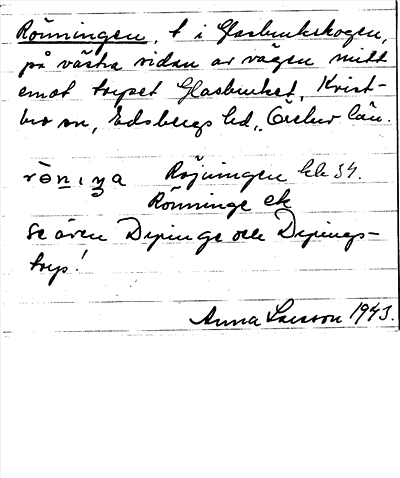 Rönningen, t i Glasbrukskogen,
på västra sidan av vägen mitt
emot torpet Glasbruket, Krist-
bro sn, Edsbergs hd, Örebro län.
röniŋa Röjningen hk 34.
Rönninge ek
Se även Dypinge och Dypings-
torp!
Anna Larsson 1943.